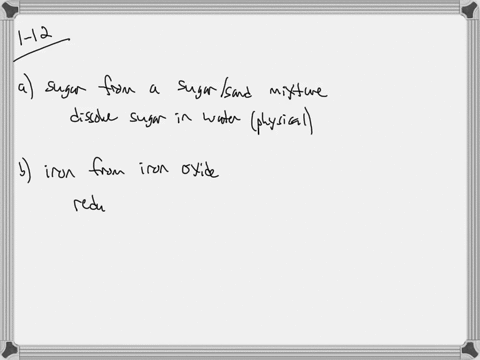 1-12
a) sugar from a sugar/sand mixture
dissolve sugar in water (physical)
b) iron from iron oxide
redu